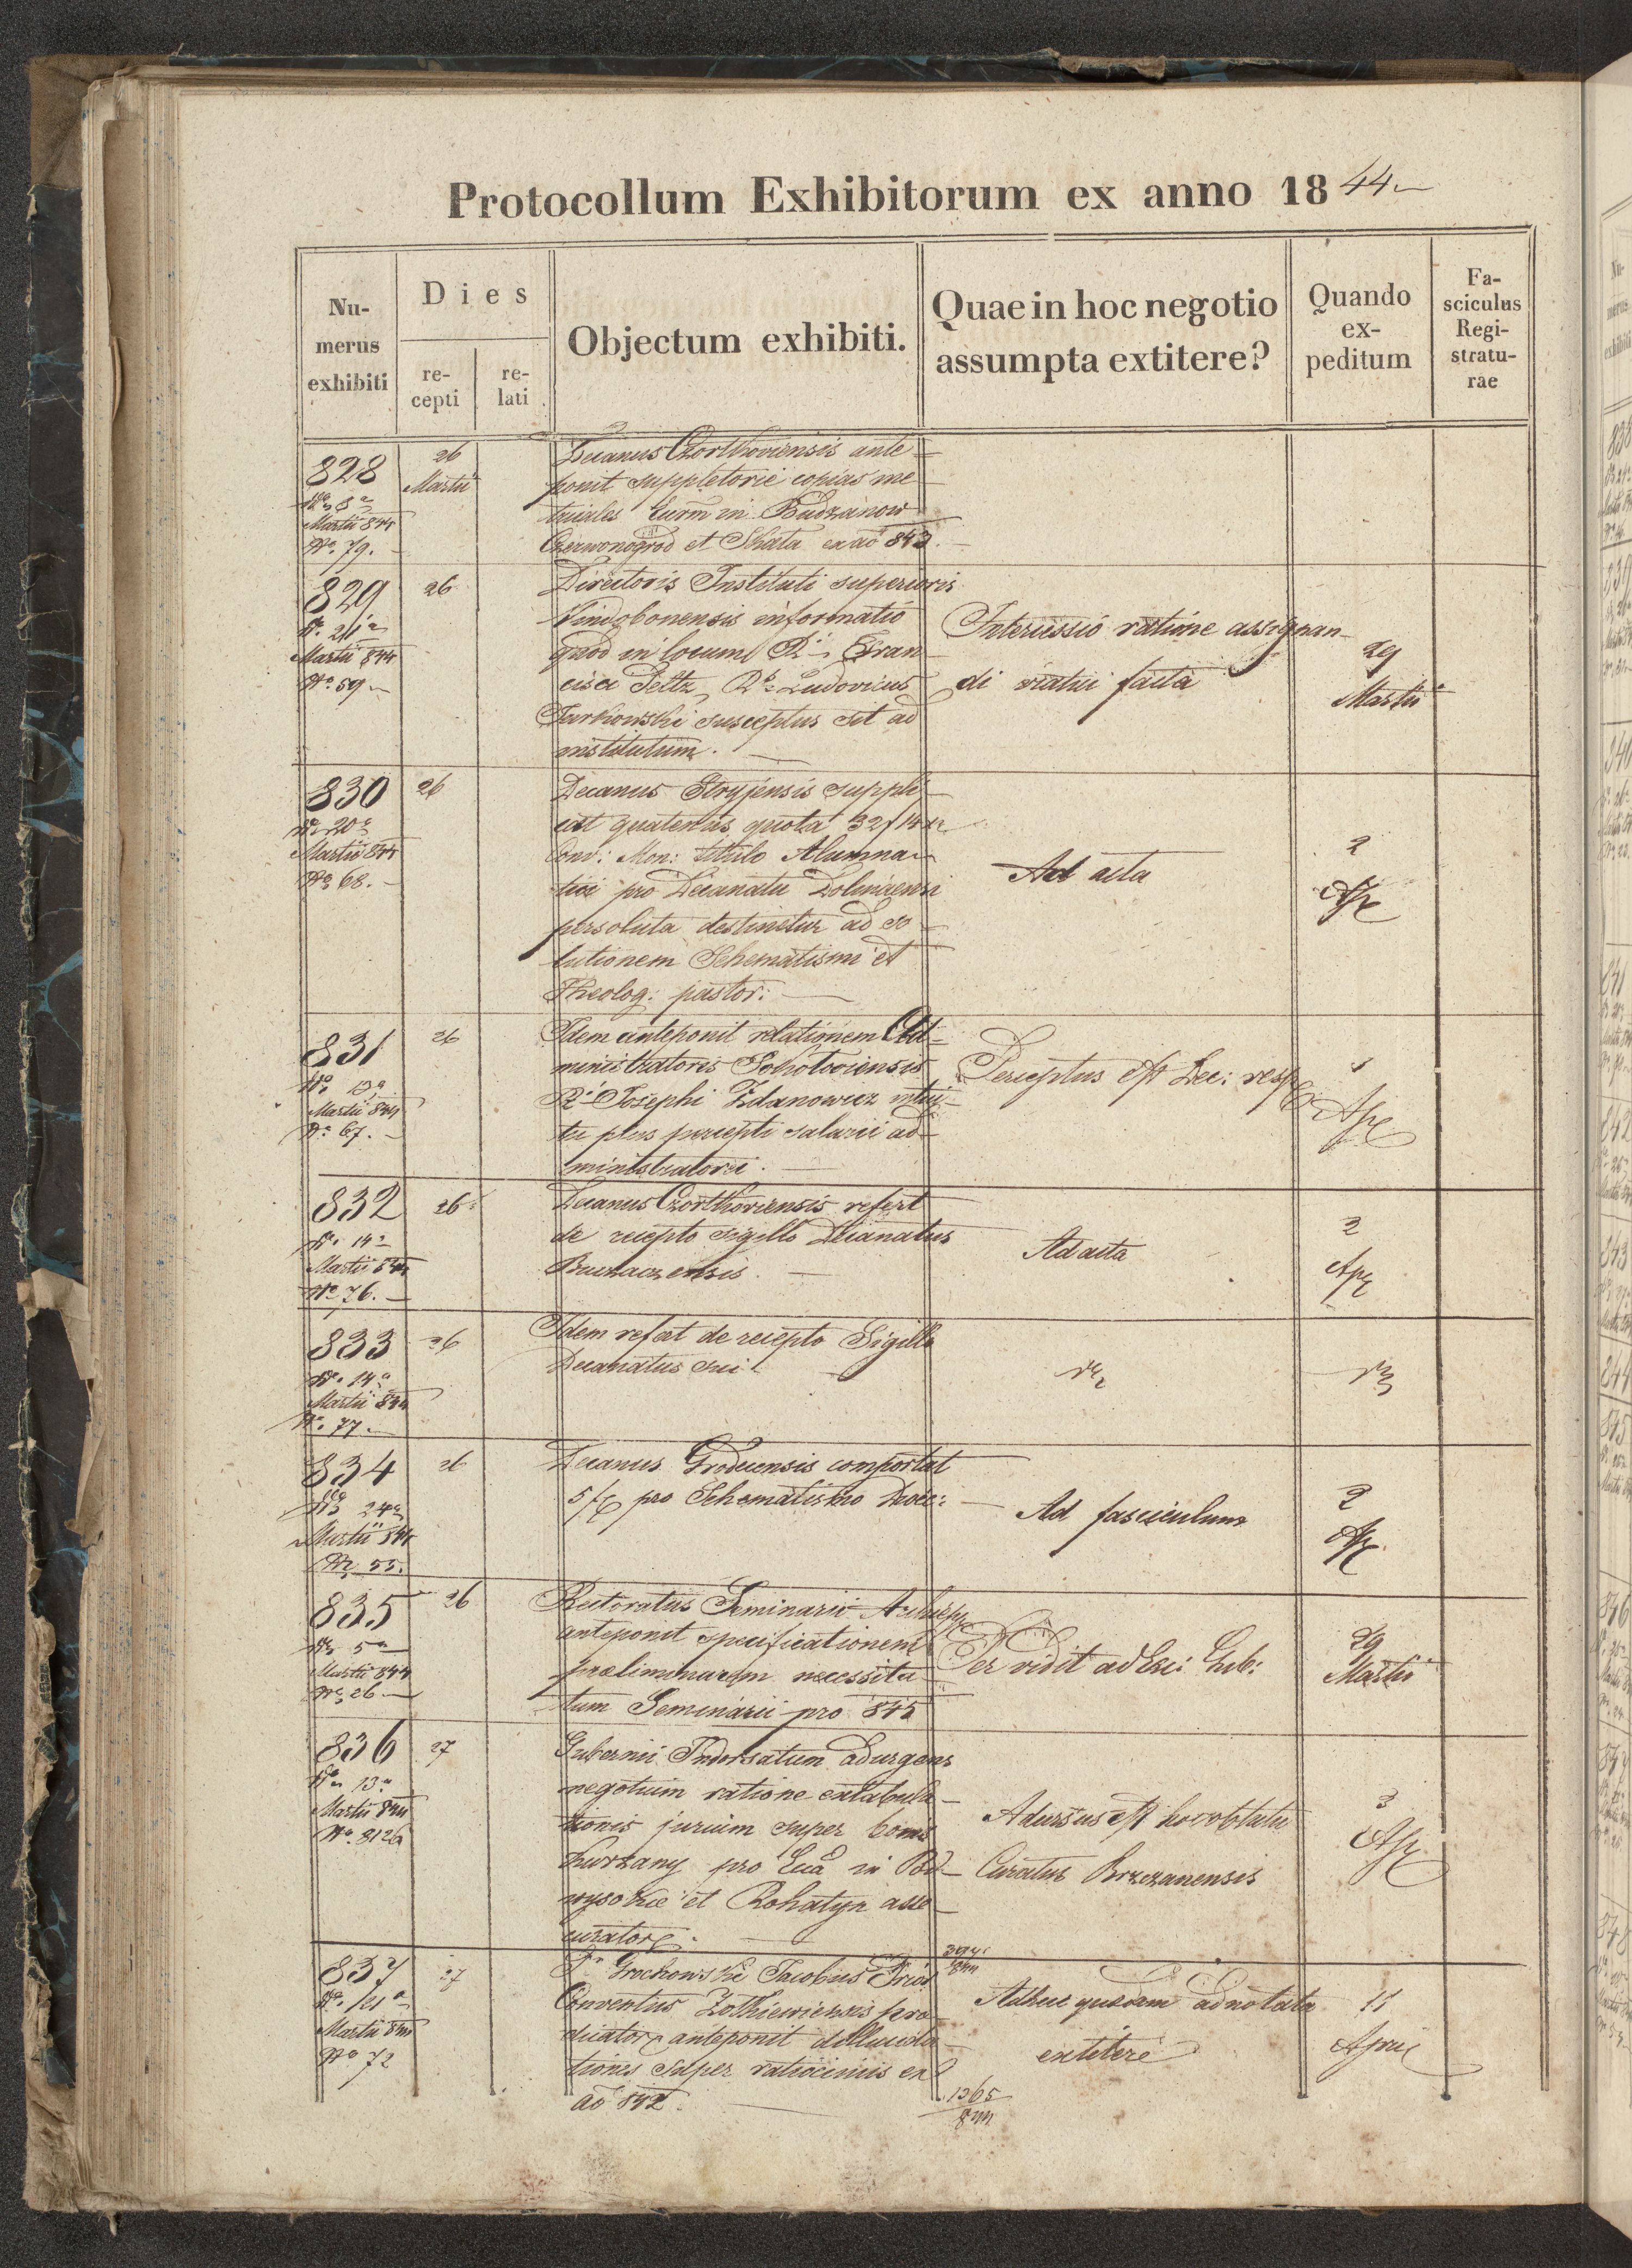 Protocollum Exhibitorum ex anno 1844
Nu-
merus
exhibiti
Dies
re-
cepti
re-
lati
Objectum exhibiti.
Quae in hoc negotio
assumpta extitere?
Quando
ex-
peditum
Fa-
sciculus
Regi-
stratu-
rae
828
26
Martii
Martii 844
No. 79.
Decanus Czorthoviensis ante
ponit suppletorie copias me
tricales Eccarum in Budzanow
Czerwonogrod et Skata ex ao 843.
829
26
Martii 844
No. 59
Directoris Instituti superioris
Vindobonensis informatio
quod in locum Ri Fran
cisci Peltz, Rs Ludovicus
Jurkowski susceptus sit ad
institutum.
Intercessio ratione assignan
di viatici facta
29
Martii
830
26
20a
Martii 844
No 68.
Decanus Stryjensis suppli
cat quatenus quota 32 f 14 xr
Conv: Mon: titulo Alumna
tici pro Decanatu Dolinensi
persoluta destinetur ad so
lutionem Schematismi et
Theolog: pastor:
Ad acta
2
Apr
831
26
Martii 844
No 67.
Idem anteponit relationem Ad
ministratoris Sokotoviensis
Ri Josephi Zdanowicz intui
tu plus percepti salarii ad
ministratorii.
Perceptus est Dec: resp
Apr
832
26
14a
Martii 844
No 76.
Decanus Czorthoviensis refert
de recepto sigillo Decanatus
Buczaczensis.
Ad acta
2
Apr
833
26
14a
Martii 844
No. 77.
Idem refert de recepto Sigillo
Decanatus sui
834
26
24a
Martii 844
No 55.
Decanus Grodecensis comportat
5 f pro Schematismo Dioec:
Ad fasciculum
2
Apr
835
26
5a
Martii 844
No 26
Rectoratus Seminarii Archiep
anteponit specificationem
praeliminarem necessita
tum Seminarii pro 845
Per vidit ad Exc: Gub:
29
Martii
836
27
13a
Martii 844
No. 8126
Gubernii Indorsatum adurgens
negotium ratione extabula
tionis jurium super bonis
Kurzany pro Ecca in Pod
wysokie et Rohatyn asse
curator
Adursus est hoc obtutu
Curatus Brzezanensis
3
Apr
837
27
Martii 844
No 72
Grochowski Jacobus Prior
Conventus Zolkiewiensis prae
dicator anteponit dilluci da
tiones super ratiociniis ex
ao 842.
Adhuc quaedam adnotata
extitere
1365
844
11
April